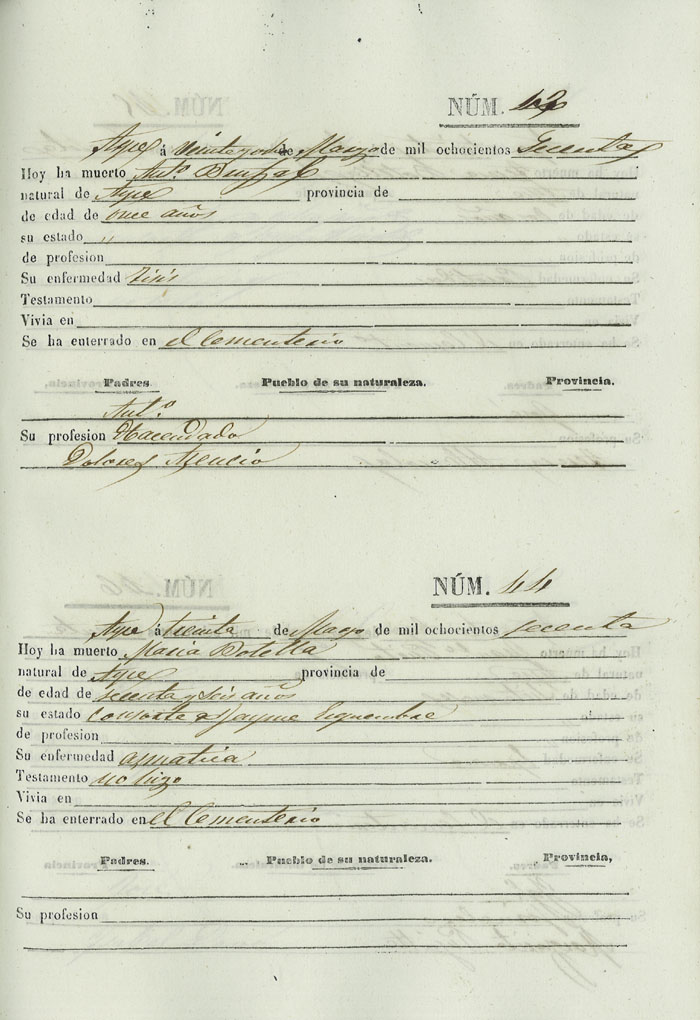 NÚM. 43
Aspe á veinte y dos de Marzo de mil ochocientos secenta
Hoy ha muerto Ant.º
natural de Aspe provincia de
de edad de once años
su estado "
de profesion
Su enfermedad tisis
Testamento
Vivia en
Se ha enterrado en el Cementerio
Padres. Pueblo de su naturaleza. Provincia.
Ant.º
Su profesion Hacendado
Dolores Asencio
NÚM. 44
Aspe á treinta de Marzo de mil ochocientos secenta
Hoy ha muerto Maria Botella
natural de Aspe provincia de
de edad de secenta y seis años
su estado consorte de Jayme
de profesion
Su enfermedad asmatica
Testamento no hizo
Vivia en
Se ha enterrado en el Cementerio
Padres. Pueblo de su naturaleza. Provincia,
Su profesion